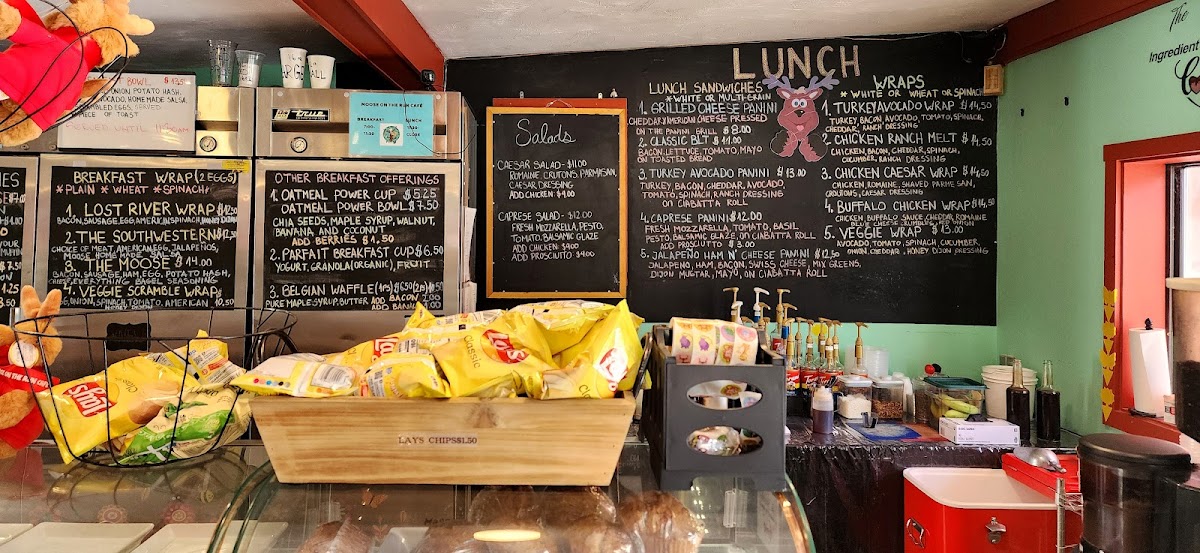 LUNCH
LUNCH SANDWICHES
*WHITE OR MULTI-GRAIN
1. GRILLED CHEESE PANINI
CHEDDAR/AMERICAN CHEESE PRESSED
ON THE PANINI GRILL $8.00
2. CLASSIC BLT $11.00
BACON, LETTUCE, TOMATO, MAYO
ON TOASTED BREAD
3. TURKEY AVOCADO PANINI $13.00
TURKEY, BACON, CHEDDAR, AVOCADO,
TOMATO, SPINACH, RANCH DRESSING
ON CIABATTA ROLL
4. CAPRESE PANINI $12.00
FRESH MOZZARELLA, TOMATO, BASIL
PESTO, BALSAMIC GLAZE, ON CIABATTA ROLL
ADD PROSCIUTTO $3.00
5. JALAPEÑO HAM N' CHEESE PANINI $12.50
JALAPENO, HAM, BACON, SWISS CHEESE, MIX GREENS,
DIJON MUGTAR, MAYO, ON CIABATTA ROLL
WRAPS
*WHITE OR WHEAT OR SPINACH
1. TURKEY AVOCADO WRAP $14.50
TURKEY, BACON, AVOCADO, TOMATO, SPINACH,
CHEDDAR, RANCH DRESSING
2. CHICKEN RANCH MELT $14.50
CHICKEN, BACON, CHEDDAR, SPINACH,
CUCUMBER, RANCH DRESSING
3. CHICKEN CAESAR WRAP $14.50
CHICKEN, ROMAINE, SHAVED PARMESAN,
CROUTONS, CAESAR DRESSING
4. BUFFALO CHICKEN WRAP $14.50
CHICKEN, BUFFALO SAUCE, CHEDDAR, ROMAINE
BLUE CHEESE CRUMBLES, RED ONION
5. VEGGIE WRAP $13.00
AVOCADO, TOMATO, SPINACH, CUCUMBER,
ONION, CHEDDAR, HONEY DIJON DRESSING
Salads
CAESAR SALAD - $11.00
ROMAINE, CRUTONS, PARMESAN,
CAESAR DRESSING
ADD CHICKEN $4.00
CAPRESE SALAD - $12.00
FRESH MOZZARELLA, PESTO,
TOMATO, BALSAMIC GLAZE
ADD CHICKEN $4.00
ADD PROSCIUTO $4.00
MOOSE ON THE RUN CAFE
BREAKFAST
LUNCH
7:00
11:00
11:30
CLOSE
OTHER BREAKFAST OFFERINGS
1. OATMEAL POWER CUP $5.25
OATMEAL POWER BOWL $7.50
CHIA SEEDS, MAPLE SYRUP, WALNUT,
BANANA, AND COCONUT
ADD BERRIES $1.50
2. PARFAIT BREAKFAST CUP $6.50
YOGURT, GRANOLA (ORGANIC), FRUIT
3. BELGIAN WAFFLE
PURE MAPLE SYRUP, BUTTER ADD BACON 2.00
BREAKFAST WRAP (2 EGGS)
*PLAIN *WHEAT *SPINACH
1. LOST RIVER WRAP
2. THE SOUTHWESTERN
CHOICE OF MEAT, AMERICAN, EGG, JALAPEÑOS,
MOOSE HOME MADE SALSA
3. THE MOOSE $14.00
BACON, SAUSAGE, HAM, EGG, POTATO HASH,
CHEESE, EVERYTHING BAGEL SEASONING
4. VEGGIE SCRAMBLE WRAP
EGG, ONION, SPINACH, TOMATO, AMERICAN 10.50
BOWL
ONION, POTATO HASH,
AVOCADO, HOMEMADE SALSA,
SCRAMBLED EGGS, SERVED
PIECE OF TOAST
SERVED UNTIL 11:30AM
LARGE
SMALL
True
The
Ingredient
Lay's
Classic
Lay's
Lay's
LAYS CHIPS $1.50